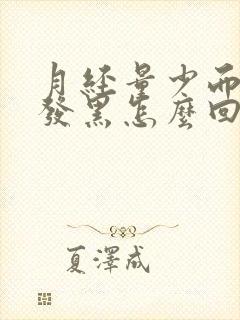 月經量少而
發黑怎麼回
夏澤成